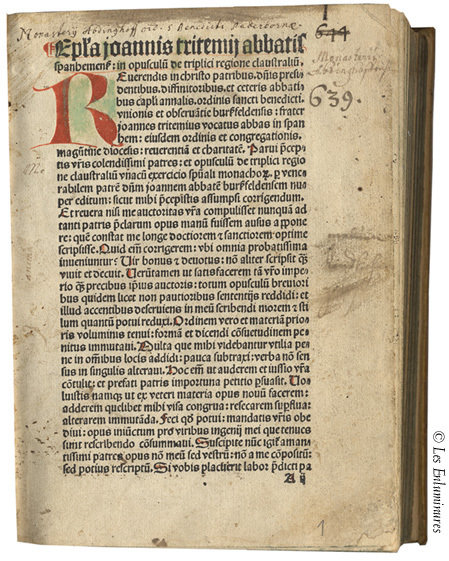 Monasterij Abdinghoff ord. S Benedicti Paderbornæ
644
Monasterij
Abdinghoff
639.
Epl'a joannis tritemij abbatis
spanhemens̄: in opusculū de triplici regione claustraliū
REuerendis in christo patribus. dn̄is presi
dentibus. diffinitoribus. et ceteris abbati
bus capl'i annalis. ordinis sancti benedicti.
vnionis et obseruātie burßfeldensis: frater
joannes tritemius vocatus abbas in span
hem: eiusdem ordinis et congregationis.
magūtine diocesis: reuerentiā et charitatē. Parui p̄cept
tis vr̄is colendissimi patres: et opusculū de triplici regio
ne claustraliū vnacū exercicio sp̄uali monachoꝝ. ꝑ vene
rabilem patrē dn̄m joannem abbatē burßfeldensem nu
per editum: sicut mihi p̄cepistis assumpsi corrigendum.
Et reuera nisi me auctoritas vr̄a compulisset nunquā ad
tanti patris p̄clarum opus manū fuissem ausus apone
re: quē constat me longe doctiorem et sanctiorem optime
scripsisse. Quid em̄ corrigerem: vbi omnia probatissima
inueniuntur? Vir bonus et deuotus: nō aliter scripsit qꝫ
vixit et docuit. Verūtamen vt satisfacerem tā vr̄o impe
rio qꝫ precibus ip̄ius auctoris: totum opusculū breuiori
bus quidem licet non paucioribus sententijs reddidi: et
illud accentibus deseruiens in meū scribendi morem et sti
lum quantū potui reduxi. Ordinem vero et materiā prio
ris voluminis tenui: formā et dicendi cōsuetudinem pe
nitus immutaui. Multa que mihi videbantur vtilia pe
ne in om̄ibus locis addidi: pauca subtraxi: verba nō sen
sus in singulis alteraui. Hoc em̄ vt auderem et iussio vr̄a
cōtulit: et prefati patris importuna petitio ꝑsuasit. Uo
luistis namqꝫ vt ex veteri materia opus nouū facerem:
adderem quelibet mihi visa congrua: resecarem suꝑflua:
alterarem immutāda. Feci qd̄ potui: mandatis vr̄is obe
diui: opus iniūctum pro viribus ingenij mei que tenues
sunt rescribendo cōsummaui. Suscipite nūc igit̄ aman
tissimi patres opus nō meū sed vestrū: nō a me cōpositū:
sed potius rescriptū. Si vobis placuerit labor p̄dicti pa
A ij
1
© Les Enluminures